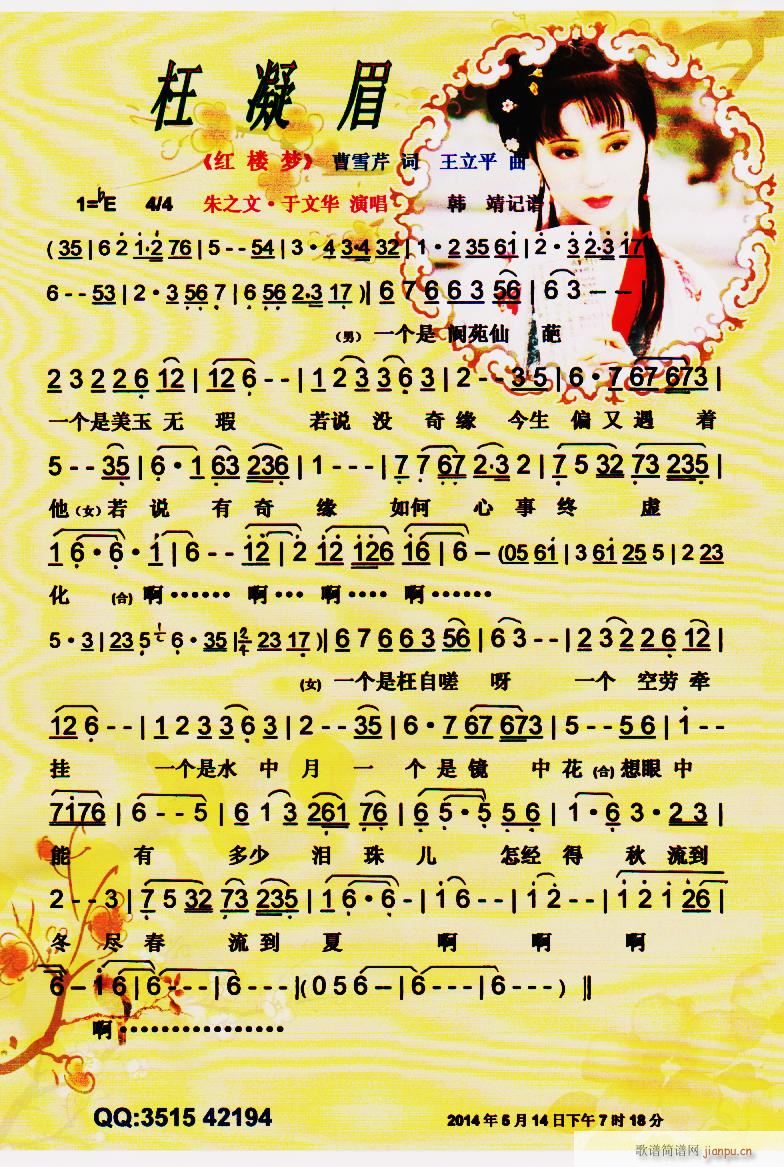 枉凝眉
《红楼梦》 曹雪芹 词 王立平 曲
1=♭E 4/4 朱之文·于文华 演唱 韩 靖记谱
( 35 | 6 2 1·2 76 | 5 - - 54 | 3 · 4 3·4 32 | 1 · 2 35 61 | 2 · 3 2·3 17 |
6 - - 53 | 2 · 3 56 7 | 6 56 2·3 17 )| 6 7 6 6 3 56 | 6 3 - - |
(男) 一个是 阆苑仙 葩
2 3 2 2 6 12 | 12 6 - - | 1 2 3 3 6 3 | 2 - - 3 5 | 6 · 7 67 673 |
一个是美玉 无 瑕 若说 没 奇缘 今生 偏 又 遇 着
5 - - 35 | 6 · 1 63 236 | 1 - - - | 7 7 67 2·3 2 | 7 5 32 73 235 |
他 (女) 若 说 有 奇 缘 如何 心 事 终 虚
1 6 · 6 · 1 | 6 - - 12 | 2 12 126 16 | 6 - (05 61 | 3 61 25 5 | 2 23
化 (合) 啊······ 啊··· 啊···· 啊······
5 · 3 | 23 5 6 · 35 | 2/4 23 17 )| 6 7 6 6 3 56 | 6 3 - - | 2 3 2 2 6 12 |
(女) 一个是枉自嗟 呀 一个 空劳 牵
12 6 - - | 1 2 3 3 6 3 | 2 - - 35 | 6 · 7 67 673 | 5 - - 5 6 | 1 - -
挂 一个是水 中 月 一 个 是 镜 中 花 (合) 想眼 中
7176 | 6 - - 5 | 6 1 3 261 76 | 6 5 · 5 5 6 | 1 · 6 3 · 2 3 |
能 有 多少 泪 珠 儿 怎经 得 秋 流到
2 - - 3 | 7 5 32 73 235 | 1 6 · 6 - | 1 6 - - | 1 2 - - | 1 2 1 26 |
冬 尽 春 流 到 夏 啊 啊 啊
6 - 1 6 | 6 - - - | 6 - - - |( 0 5 6 - - | 6 - - - | 6 - - - ) ‖
啊················
QQ:3515 42194
2014 年 5 月 14 日下午 7 时 18 分
歌谱简谱网 jianpu.cn